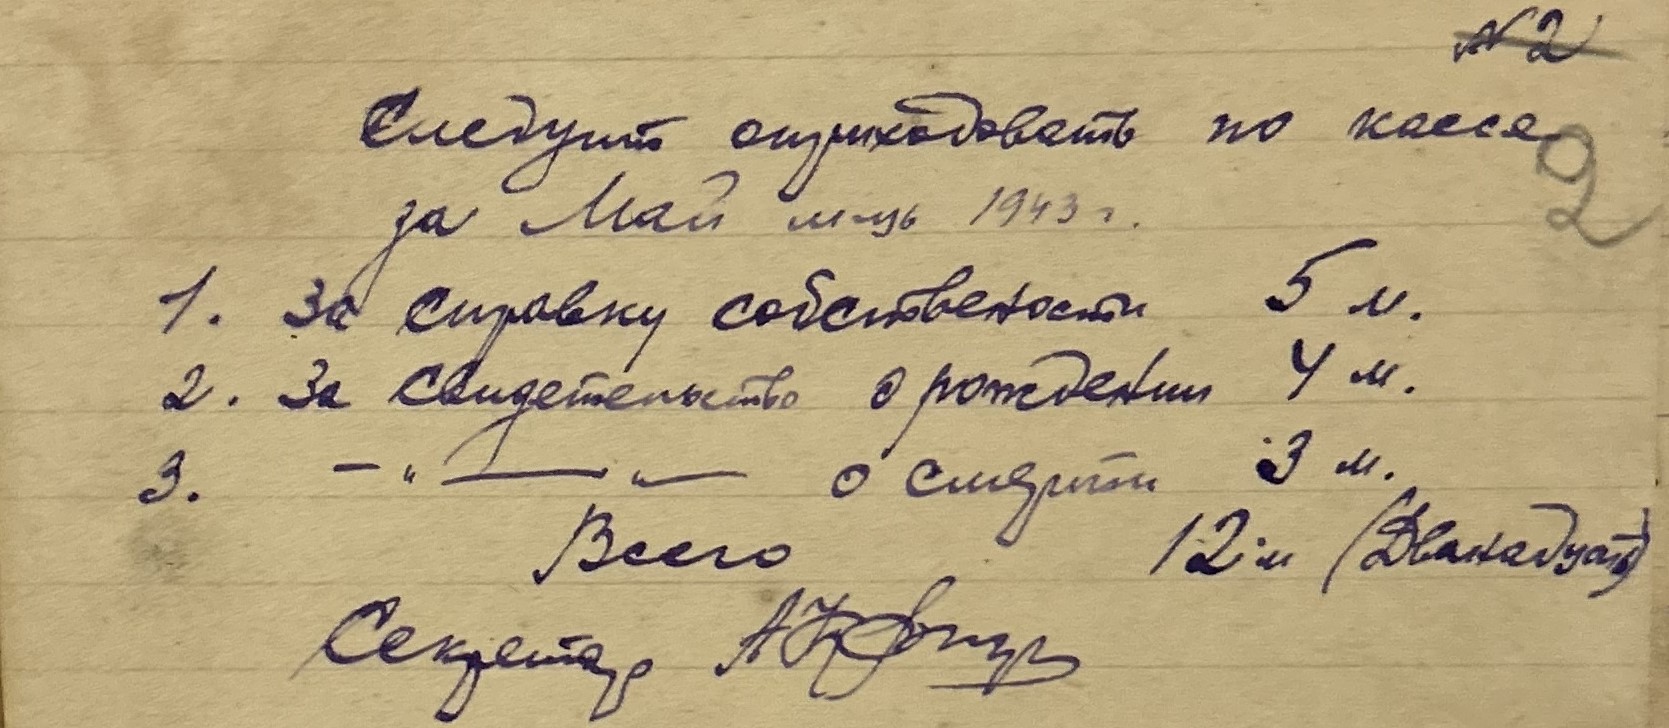 №2
Следует оприходовать по кассе
2
за Май м-ць 1943 г.
1. За справку собствености 5 м.
2. За свидетельство о рождении 4 м.
3. —"——"— о смерти 3 м.
Всего 12 м (Дванадцать)
Секретар